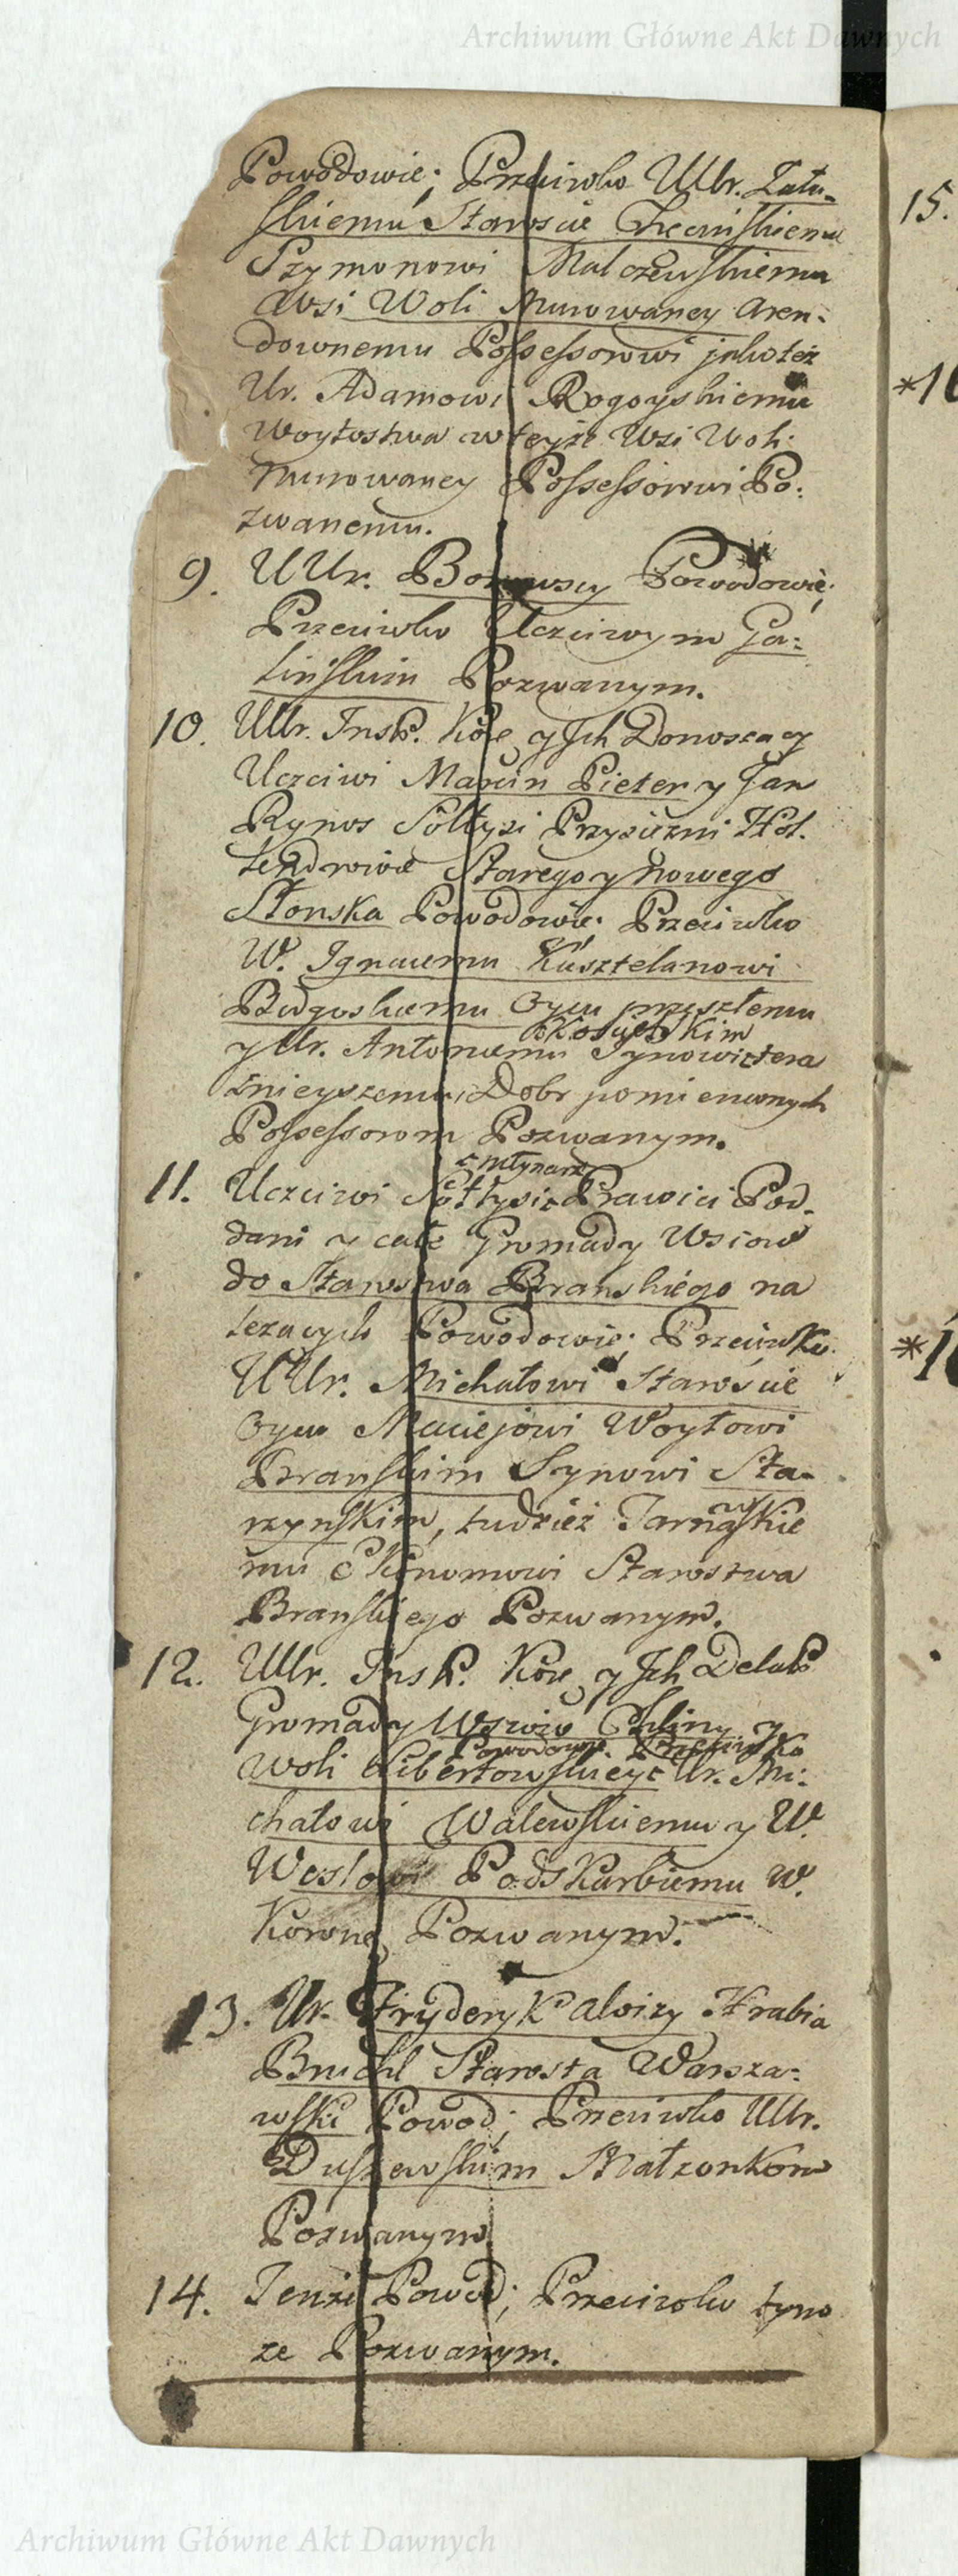 Archiwum Główne Akt Dawnych
Powodowie; Przeciwko UUr. Zału-
skiemu Staroscie Chęcinskiemu
Szymonowi Malczewskiemu
Wsi Woli Murowaney Aren-
downemu Possessorowi jako też
Ur. Adamowi Rogoyskiemu
Woytostwa w teyże Wsi Woli
Murowaney Possessorowi Po-
zwanemu.
9. UUr. Powodowie;
Przeciwko Uczciwym Ga-
linskim Pozwanym.
10. UUr. Inst. Kore y Ich Donoszący
Uczciwi Marcin Pieter y Jan
Rynos Sołtysi Przysiężni Hol-
lendrowie Starego y Nowego
Słonska Powodowie. Przeciwko
W. Ignacemu Kasztelanowi
Bidgoskiemu Oycu przeszłemu
Kościelskim
y Ur. Antoniemu Synowi tera
znieyszemu Dobr pomienionych
Possessorom Pozwanym.
c Młynarze
11. Uczciwi Sołtysi c Prawici Pod-
dani y całe Gromady Wsiow
do Starostwa Branskiego na
lezących Powodowie; Przeciwko
UUr. Michałowi Staroscie
Oycu Maciejowi Woytowi
Branskim Synowi Sta-
rzynskim, tudzież Tarnawskie
mu Ekonomowi Starostwa
Branskiego Pozwanym.
12. UUr. Inst. Kore y Ich Delat
Gromady Wsiow Chliny y
Powodowie. Przeciwko
Woli Libertowskiey c Ur. Mi-
chałowi Walewskiemu y W.
Weslowi Podskarbiemu W.
Koronne Pozwanym.
13. Ur. Fryderyk Aloizy Hrabia
Bruchl Starosta Warsza-
wski Powod; Przeciwko UUr.
Duszewskim Małzonkom
Pozwanym.
14. Tenże Powod; Przeciwko tym
ze Pozwanym.
15.
*1
*1
Archiwum Główne Akt Dawnych